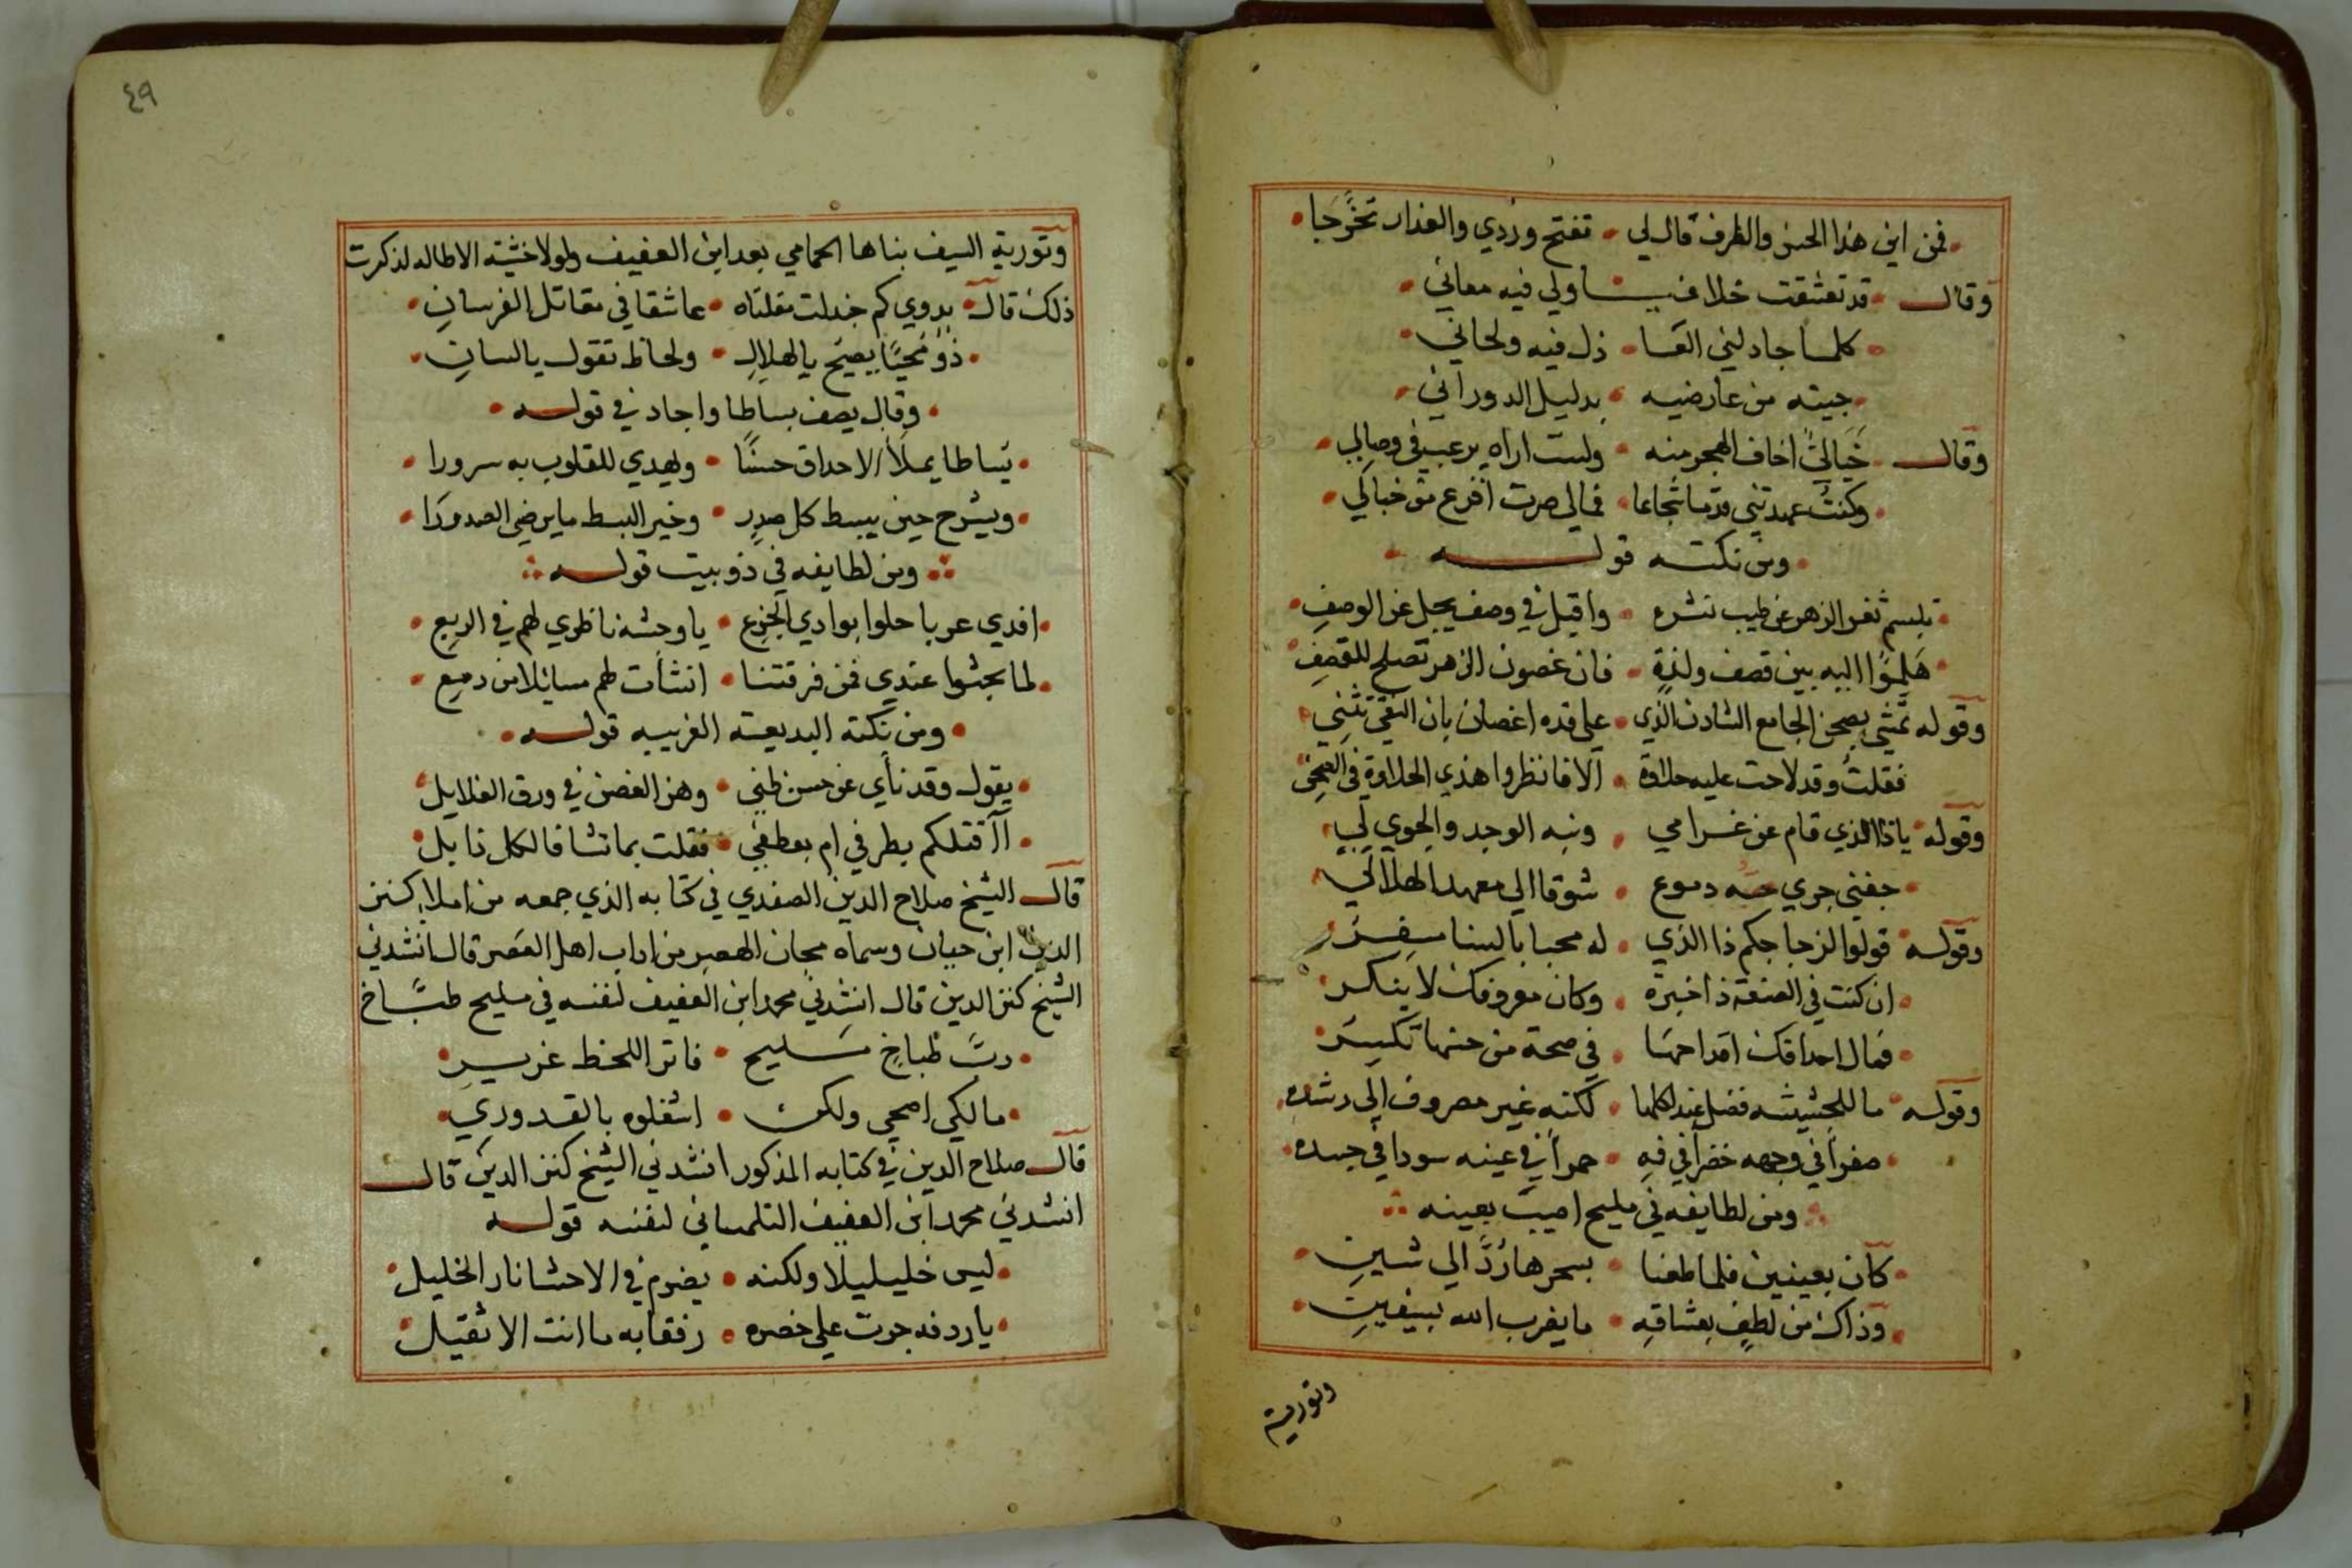 فمن اين هذا الحسن والظرف قال لي • تفتح وردي والعذار تخرجا
وقال • قد تعشقت خلافيـــا ولي فيه معاني
كلما جادلني العـا • ذل فيه ولحاني
جيته من عارضيه • بدليل الدوراني
وقال • اخاف الهجر منه • ولست اراه يرغب في وصالي
وكنت عهدتني قدما شجاعا • فمالي صرت افزع من خيالي
ومن نكته قوله
تبسم ثغر الزهر عن طيب نشره • واقبل في وصف يجل عن الوصف
هلموا اليه بين قصف ولذة • فان غصون الزهر تصلح للقصف
وقوله تمشي بصحن الجامع الشادن الذي • على قده اغصان بان النقى تثني
فقلت وقد لاحت عليه حلاوة • الا فانظروا هذي الحلاوة في الصحن
وقوله • ياذا الذي قام عن غرامي • ونبه الوجد والجوي لي
جفني جري دموع • شوقا الي معهد الهلالي
وقوله • قولوا لزجاجكم ذا الذي • له محيا بالسنا سفر
ان كنت في الصنعة ذا خبرة • وكان معروفك لا ينكر
فمال احداقك اقداحها • في صحة من حسنها تكسر
وقوله • ما للحشيشه فضل عند اكلها • لكنه غير مصروف الي رشده
صفرا في وجهه خضرا في فيه • حمرا في عينه سودا في جسده
ومن لطايفه في مليح اصيب بعينه
كان بعينين فلما طغا • بسحرها رد الي شين
وذاك من لطف بعشاقه • ما يضرب الله بسيفين
وتورية
٤٩
وتورية السيف بناها الحمامي بعد ابن العفيف ولولا خشية الاطاله لذكرت
ذلك قال • بدوي كم جدلت مقلتاه • عاشقا في مقاتل الفرسان
ذو محيا يصيح يا لهلال • ولحاظ تقول يا لسان
وقال يصف بساطا واجاد في قوله
بساطا يملا الاحداق حسنا • ويهدي للقلوب به سرورا
ويشرح حين يبسط كل صدر • وخير البسط ما يرضي الصدورا
ومن لطايفه في ذو بيت قوله
افدي عربا حلوا بوادي الجزع • يا وحشة ناظري لهم في الربع
لما بحثوا عندي فمن فرقتنا • انشات لهم مسائلا من دمع
ومن نكته البديعة الغريبه قوله
يقول وقد ناي عن حسن ظني • وهز الغصن في ورق الغلايل
ااقتلكم بطرفي ام بعطفي • فقلت بما تشا فالكل ذابل
قال الشيخ صلاح الدين الصفدي في كتابه الذي جمعه من املا كنز
الدين ابن حيان وسماه مجان الهصر من اداب اهل العصر قال انشدني
الشيخ كنز الدين قال انشدني محمد ابن العفيف لنفسه في مليح طباخ
رب طباخ مليح • فاتر اللحظ غرير
مالكي اصحي ولكن • اشغلوه بالقدوري
قال صلاح الدين في كتابه المذكور انشدني الشيخ كنز الدين قال
انشدني محمد ابن العفيف التلمساني لنفسه قوله
ليس خليلي لا ولكنه • يضرم في الاحشا نار الخليل
يا ردفه جرت علي خصره • رفقا به ما انت الا ثقيل